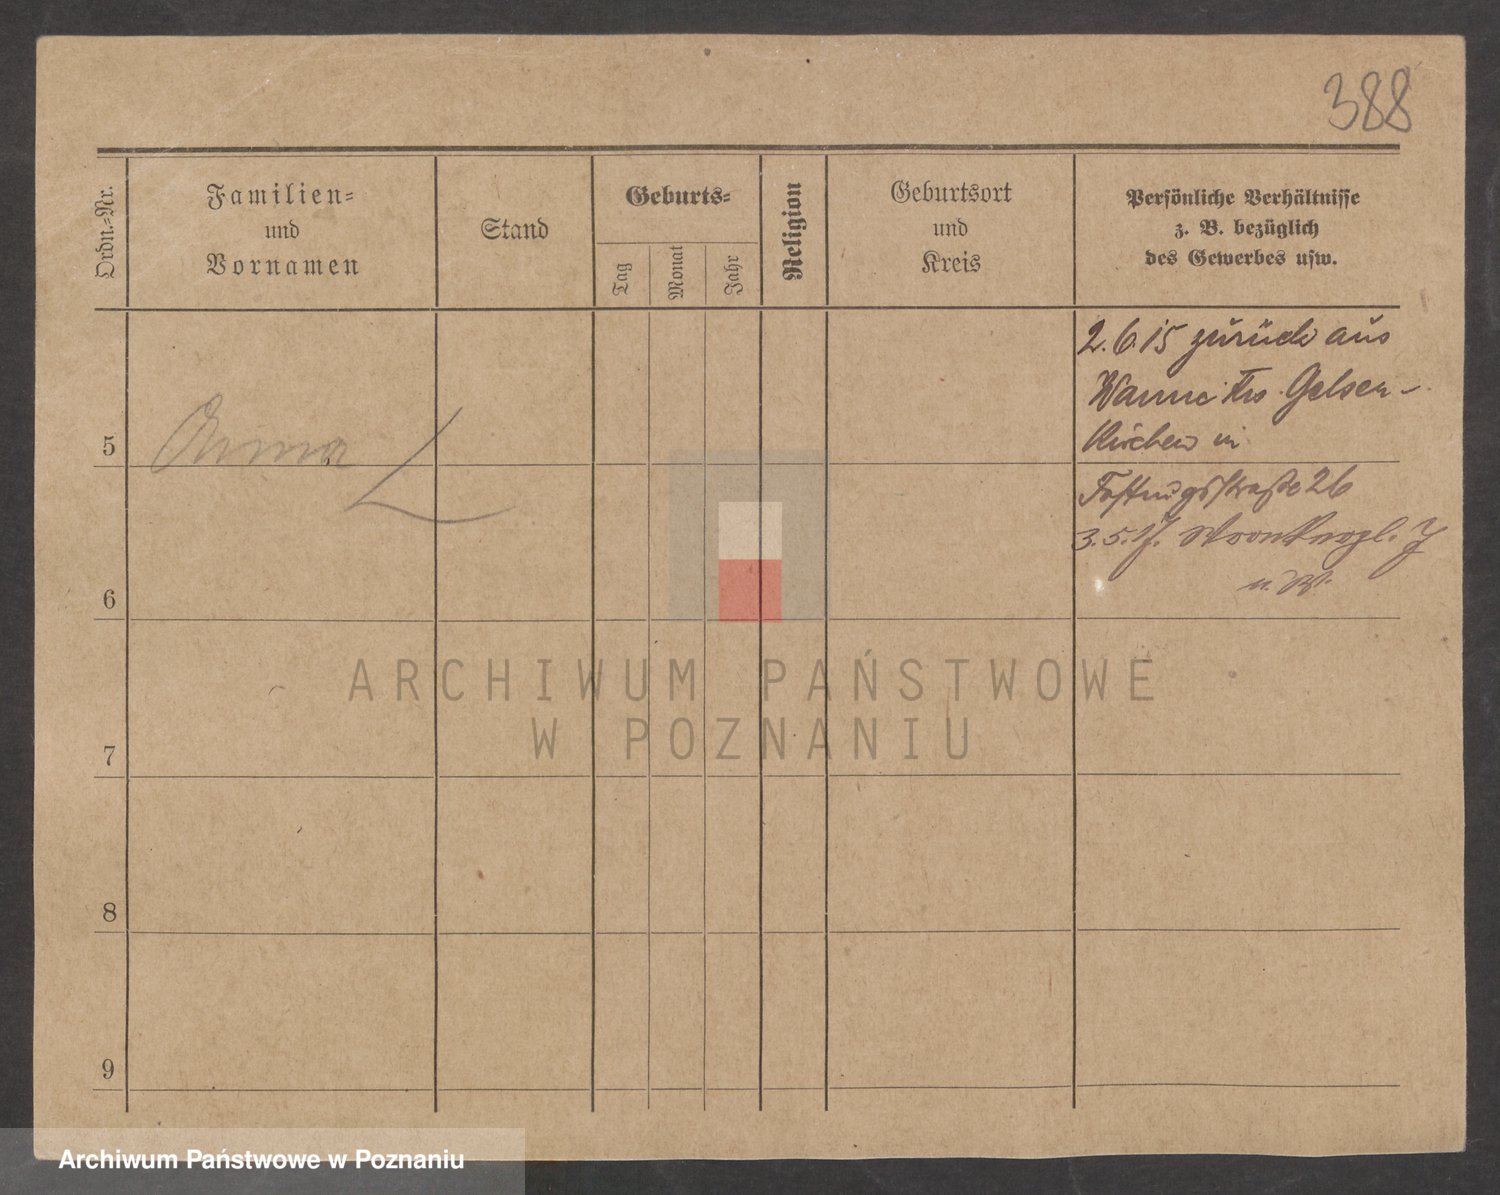 388
Ordn.-Nr.
Familien-
und
Vornamen
Stand
Geburts-
Tag
Monat
Jahr
Religion
Geburtsort
und
Kreis
Persönliche Verhältnisse
z. B. bezüglich
des Gewerbes usw.
2.6.15 zurück aus
Wanne Krs. Gelsen-
kirchen in
5
straße 26
3.5.17.
6
7
8
9
ARCHIWUM PAŃSTWOWE
W POZNANIU
Archiwum Państwowe w Poznaniu